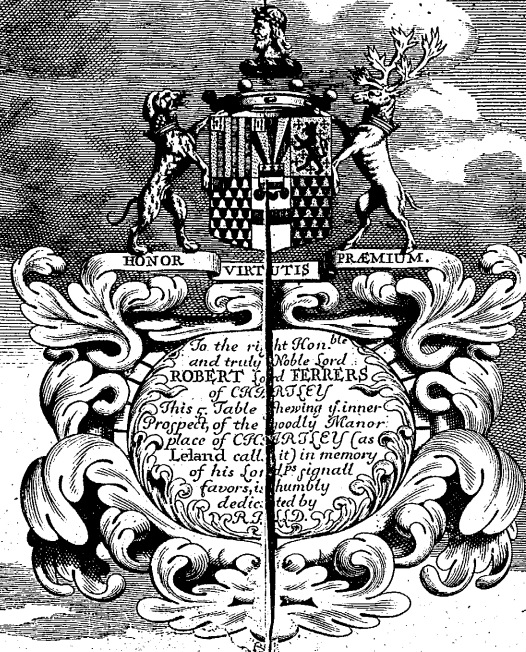 HONOR VIRTUTIS PRÆMIUM.
To the right Hon.ble
and truly Noble Lord
ROBERT Lord FERRERS
of CHARTLEY
This 5. Table shewing y.e inner
Prospect, of the goodly Manor
place of CHARTLEY (as
Leland calls it) in memory
of his Lordps signall
favors, is humbly
dedicated by